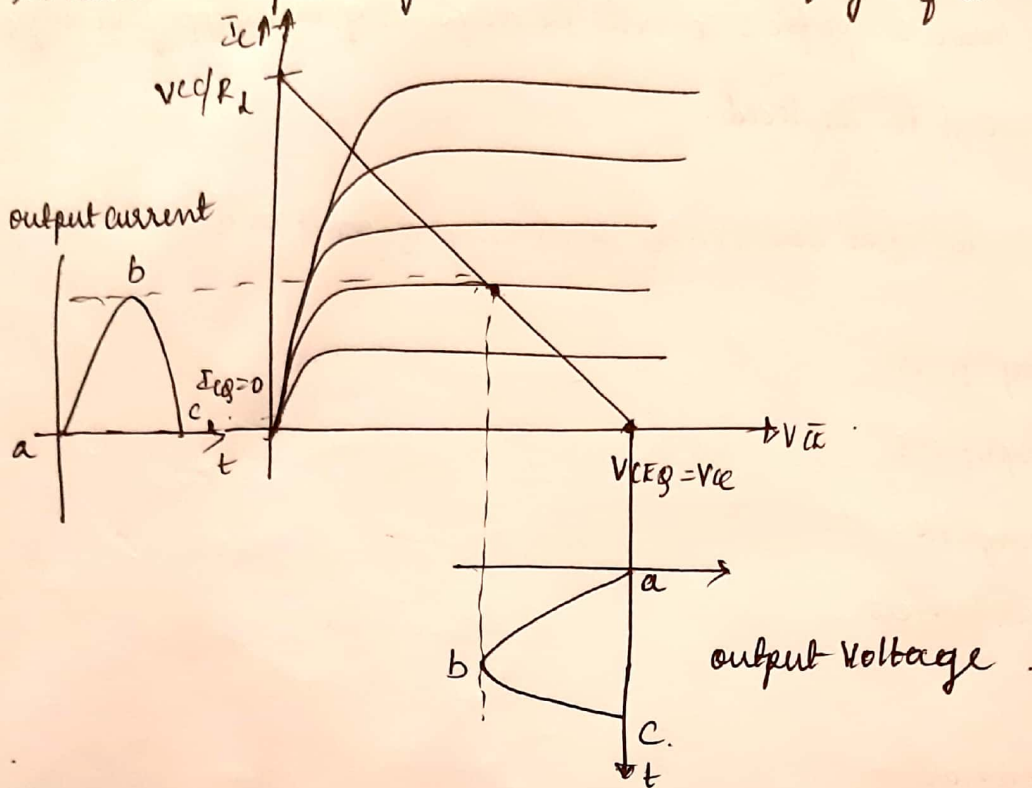 Ic
VCC/RL
output current
b
ICQ=0
c
a
t
VCE
VCEQ = Vce
a
b
output voltage
C.
t